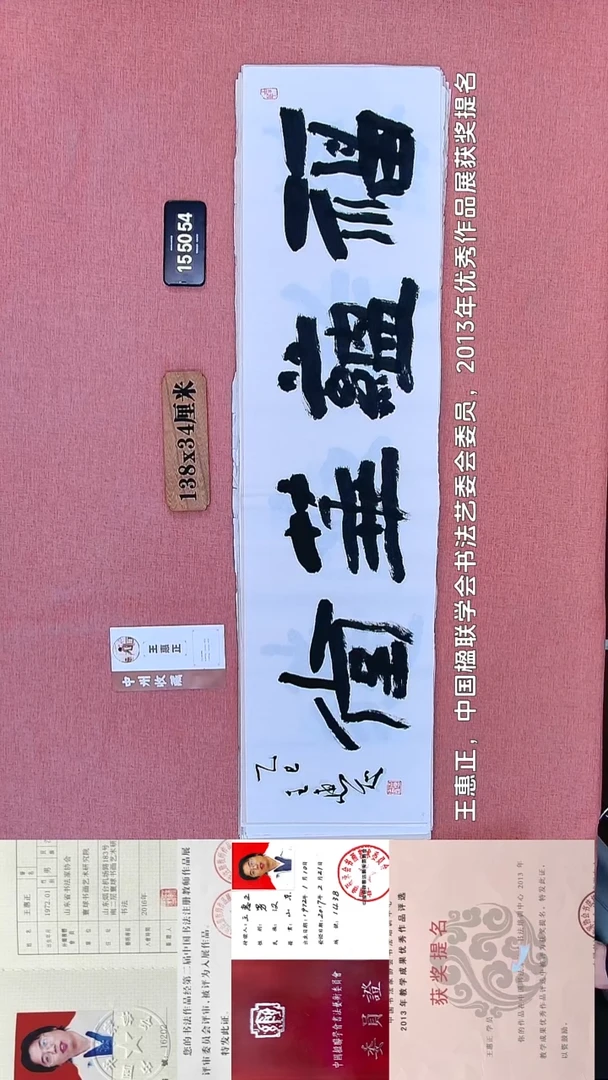 福蘊華堂
乙巳
王惠正
155054
138x34厘米
王惠正
中州收藏
王惠正，中国楹联学会书法艺委会委员，2013年优秀作品展获奖提名
王惠正
1972.01
男
山东省书法家协会
书法
2016年
您的书法作品经第二届中国书法注册教师作品展
评审委员会评审，被评为入展作品。
特发此证。
中国楹联学会书法艺术委员会
委員證
2013年教学成果优秀作品评选
获奖提名
王惠正
教学成果优秀作品评
特发此证。
以资鼓励。